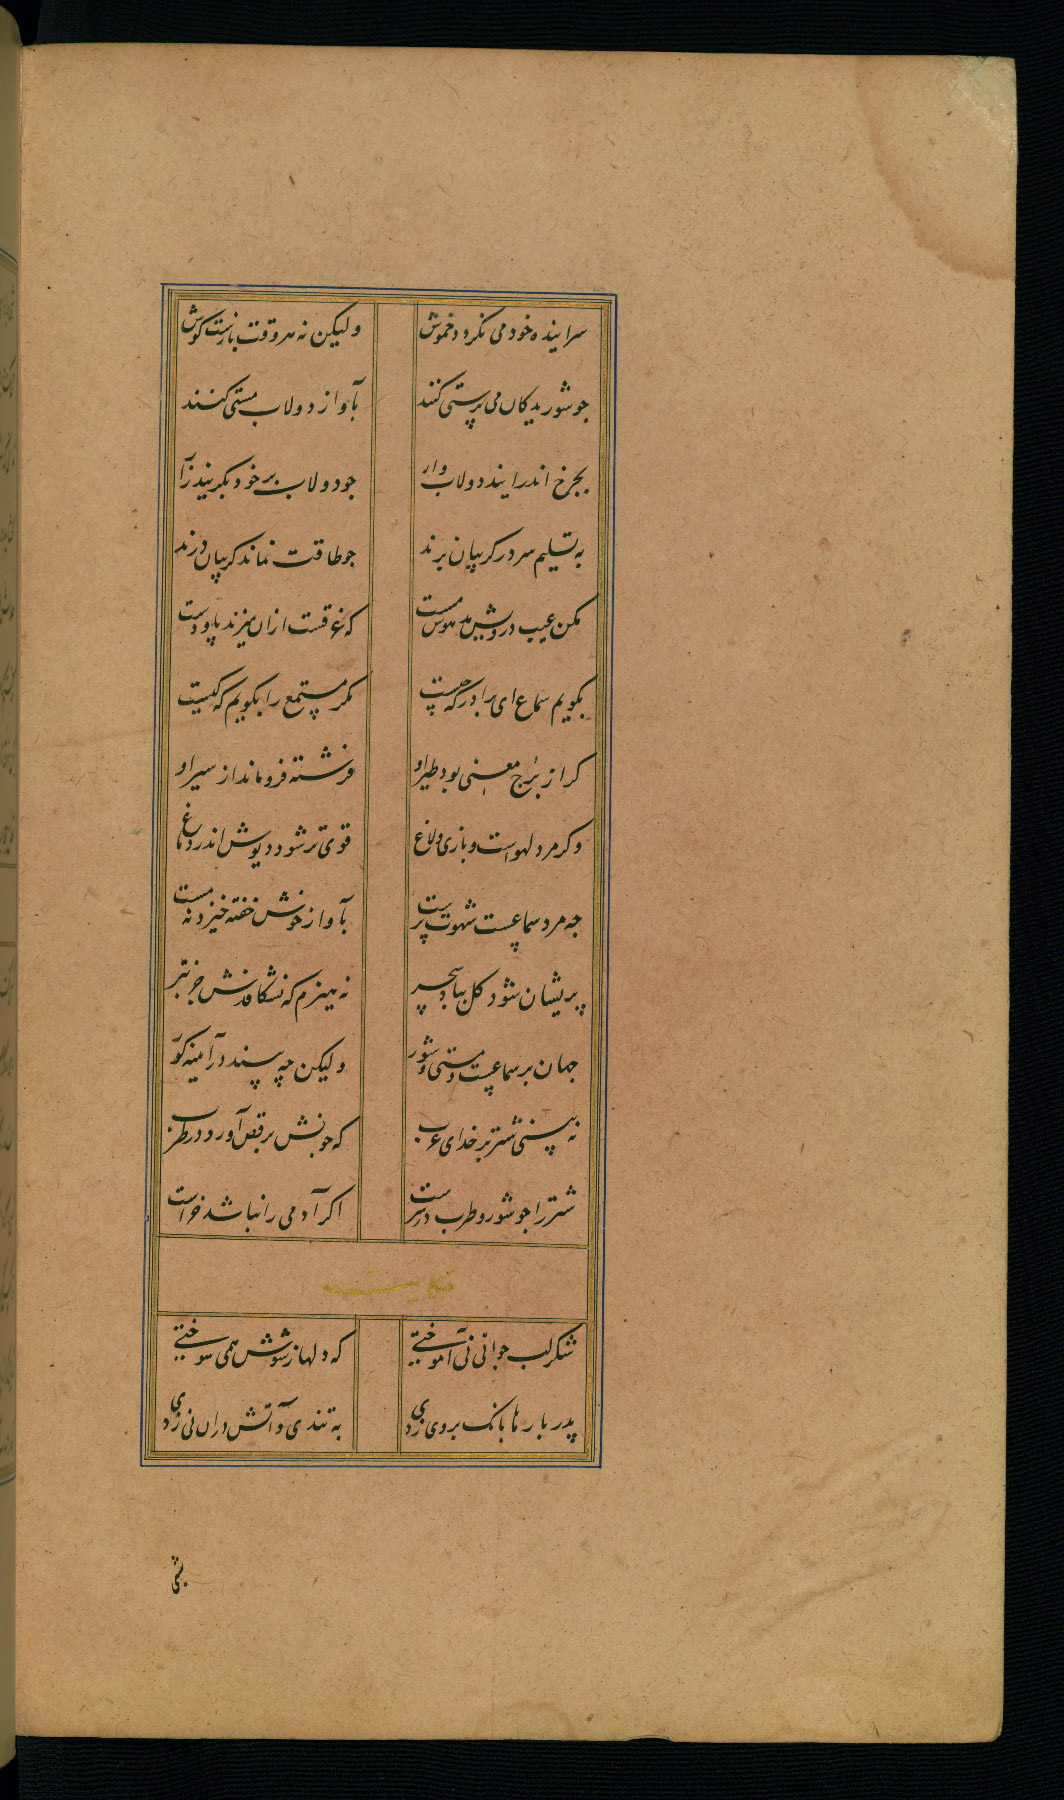 سراینده خود می نکردد خموش ولیکن نه هر وقت بازست کوش
جو شوریدکان می پرستی کنند بآواز دولاب مستی کنند
بجرخ اندر ایند دولاب وار جو دولاب بر خود بکریند زار
به تسلیم سر در کریبان برند جو طاقت نماند کریبان درند
مکن عیب درویش مدهوش مست که غرقست ازان میزند پا و دست
بکویم سماع ای برادر که چیست مکر مستمع را بکویم که کیست
کر از برج معنی بود طیر او فرشته فرو ماند از سیر او
وکر مرد لهواست و بازی ولاغ قوی تر شود دیوش اندر دماغ
جه مرد سماعیست شهوت پرست بآواز خوش خفته خیزد نه مست
پریشان شود کل بباد سحر نه هیزم که نشکافدش جز تبر
جهان بر سماعیست و مستی و شور ولیکن چه بیند در آیینه کور
نه بینی شتر بر حدای عرب که جونش برقص آورد در طرب
شتر را جو شور و طرب در سرست اکر آدمی را نباشد خرست
حکایت
شکر لب جوانی نی آموختی که دلها ز سوزش همی سوختی
پدر بارها بانک بروی زدی به تندی و آتش دران نی زدی
شبی